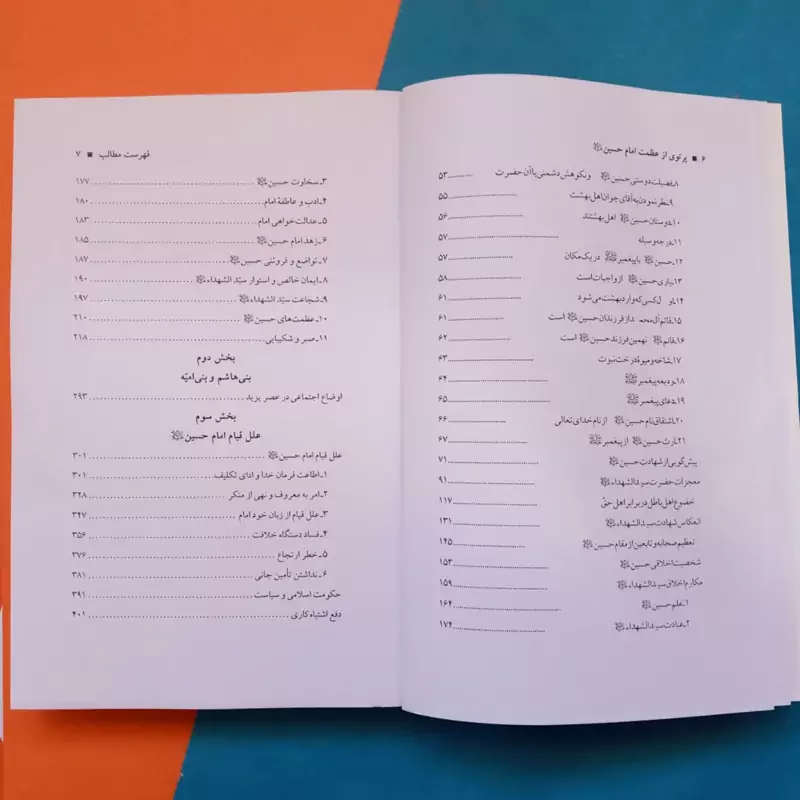 ۶ ■ پرتوی از عظمت امام حسین ﷷ
۸ـ فضیلت دوستی حسین ﷷ و نکوهش دشمنی با آن حضرت ........ ۵۳
۹ـ نظر نمودن به آقای جوانان اهل بهشت ........ ۵۵
۱۰ـ دوستان حسین ﷷ اهل بهشتند ........ ۵۶
۱۱ـ درجه وسیله ........ ۵۷
۱۲ـ حسین ﷷ با پیغمبر ﷺ در یک مکان ........ ۵۷
۱۳ـ یاری حسین ﷷ از واجبات است ........ ۵۸
۱۴ـ اول کسی که وارد بهشت می‌شود ........ ۶۱
۱۵ـ قائم آل محمد از فرزندان حسین ﷷ است ........ ۶۱
۱۶ـ قائم ﷷ نهمین فرزند حسین ﷷ است ........ ۶۲
۱۷ـ شاخه و میوۀ درخت نبوت ........ ۶۳
۱۸ـ ودیعه پیغمبر ﷺ ........ ۶۴
۱۹ـ دعای پیغمبر ﷺ ........ ۶۵
۲۰ـ اشتقاق نام حسین ﷷ از نام خدای تعالی ........ ۶۶
۲۱ـ ارث حسین ﷷ از پیغمبر ﷺ ........ ۶۷
پیش‌گویی از شهادت حسین ﷷ ........ ۷۱
معجزات حضرت سیدالشهداء ﷷ ........ ۹۱
خضوع اهل باطل در برابر اهل حقّ ........ ۱۱۷
انعکاس شهادت سیدالشهداء ﷷ ........ ۱۳۱
تعظیم صحابه و تابعین از مقام حسین ﷷ ........ ۱۴۵
شخصیت اخلاقی حسین ﷷ ........ ۱۵۳
مکارم اخلاق سیدالشهداء ﷷ ........ ۱۵۹
۱ـ علم حسین ﷷ ........ ۱۶۴
۲ـ عبادت سیدالشهداء ﷷ ........ ۱۷۴
فهرست مطالب ■ ۷
۳ـ سخاوت حسین ﷷ ........ ۱۷۷
۴ـ ادب و عاطفۀ امام ........ ۱۸۰
۵ـ عدالت‌خواهی امام ........ ۱۸۳
۶ـ زهد امام حسین ﷷ ........ ۱۸۵
۷ـ تواضع و فروتنی حسین ﷷ ........ ۱۸۷
۸ـ ایمان خالص و استوار سیّد الشهداء ﷷ ........ ۱۹۰
۹ـ شجاعت سیّد الشهداء ﷷ ........ ۱۹۷
۱۰ـ عظمت‌های حسین ﷷ ........ ۲۱۰
۱۱ـ صبر و شکیبایی ........ ۲۱۸
بخش دوم
بنی‌هاشم و بنی‌امیّه
اوضاع اجتماعی در عصر یزید ........ ۲۹۳
بخش سوم
علل قیام امام حسین ﷷ
علل قیام امام حسین ﷷ ........ ۳۰۱
۱ـ اطاعت فرمان خدا و ادای تکلیف ........ ۳۰۱
۲ـ امر به معروف و نهی از منکر ........ ۳۲۸
۳ـ علل قیام از زبان خود امام ........ ۳۴۷
۴ـ فساد دستگاه خلافت ........ ۳۵۶
۵ـ خطر ارتجاع ........ ۳۷۶
۶ـ نداشتن تأمین جانی ........ ۳۸۱
حکومت اسلامی و سیاست ........ ۳۹۱
دفع اشتباه‌کاری ........ ۴۰۱